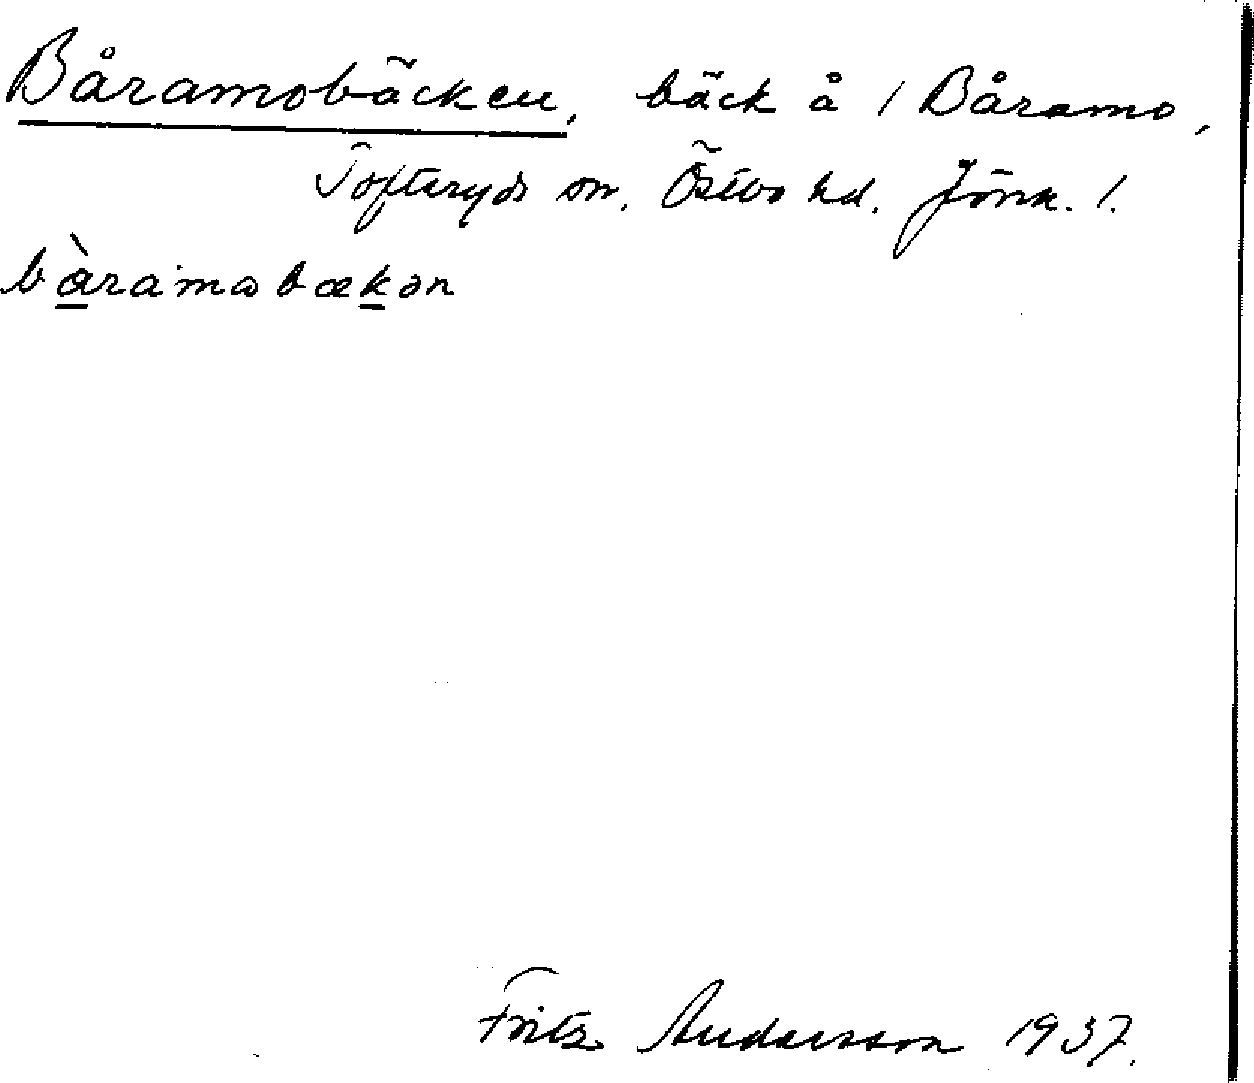 Båramobäcken, bäck å / Båramo,
Tofteryds sn. Östbo hd. Jönk. l.
bàramobækən
Fritz Andersson 1937.